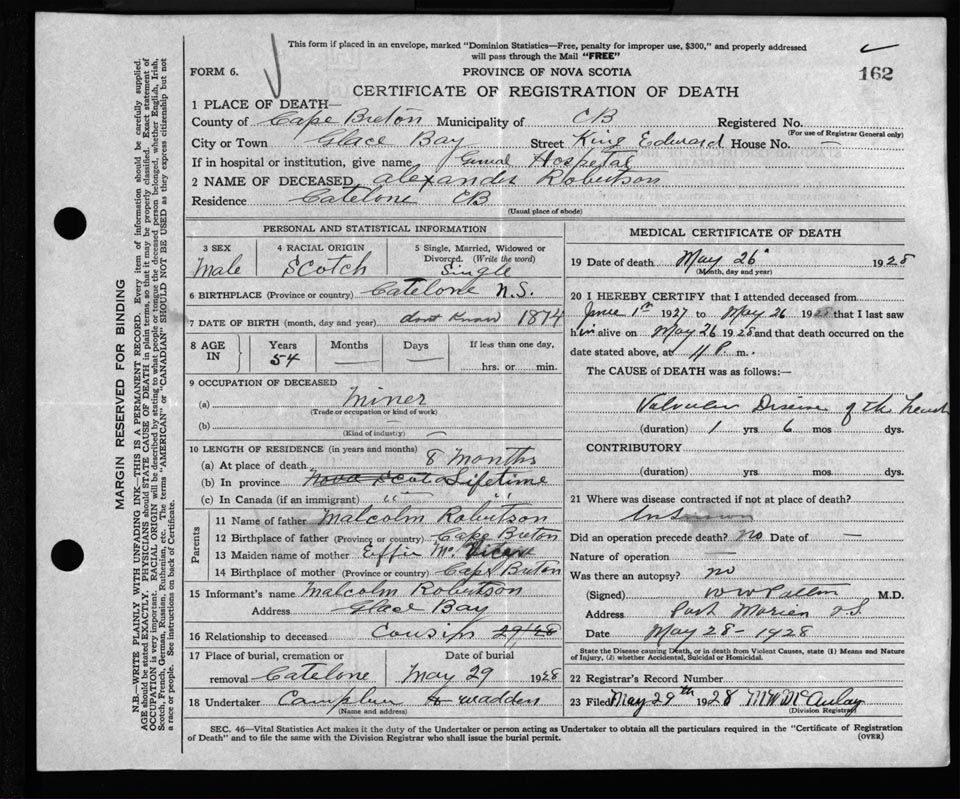 This form if placed in an envelope, marked "Dominion Statistics—Free, penalty for improper use, $300," and properly addressed
will pass through the Mail "FREE"
FORM 6.
PROVINCE OF NOVA SCOTIA
162
CERTIFICATE OF REGISTRATION OF DEATH
MARGIN RESERVED FOR BINDING
N.B.—WRITE PLAINLY WITH UNFADING INK—THIS IS A PERMANENT RECORD. Every item of information should be carefully supplied.
AGE should be stated EXACTLY. PHYSICIANS should STATE CAUSE OF DEATH in plain terms, so that it may be properly classified. Exact statement of
OCCUPATION is very important. RACIAL ORIGIN will be described by stating to what people or tongue the deceased person belonged, whether English, Irish,
Scotch, French, German, Russian, Ruthenian, etc. The terms "AMERICAN" or "CANADIAN" SHOULD NOT BE USED as they express citizenship but not
a race or people. See instructions on back of Certificate.
1 PLACE OF DEATH—
County of Cape Breton Municipality of CB Registered No.
(For use of Registrar General only)
City or Town Glace Bay Street King Edward House No. —
If in hospital or institution, give name General Hospital
2 NAME OF DECEASED Alexander Robertson
Residence Catelone CB
(Usual place of abode)
PERSONAL AND STATISTICAL INFORMATION
3 SEX 4 RACIAL ORIGIN 5 Single, Married, Widowed or
Divorced. (Write the word)
Male Scotch Single
6 BIRTHPLACE (Province or country) Catelone N.S.
7 DATE OF BIRTH (month, day and year) dont know 1874
8 AGE IN Years Months Days If less than one day,
54 — — hrs. or min.
9 OCCUPATION OF DECEASED
(a) Miner
(Trade or occupation or kind of work)
(b) —
(Kind of industry)
10 LENGTH OF RESIDENCE (in years and months)
(a) At place of death 8 months
(b) In province Nova Scotia Lifetime
(c) In Canada (if an immigrant) " "
Parents
11 Name of father Malcolm Robertson
12 Birthplace of father (Province or country) Cape Breton
13 Maiden name of mother Effie Mc
14 Birthplace of mother (Province or country) Cape Breton
15 Informant's name Malcolm Robertson
Address Glace Bay
16 Relationship to deceased Cousin 29/28
17 Place of burial, cremation or Date of burial
removal Catelone May 29 1928
18 Undertaker wadden
(Name and address)
MEDICAL CERTIFICATE OF DEATH
19 Date of death May 26 1928
(Month, day and year)
20 I HEREBY CERTIFY that I attended deceased from
June 1st 1927 to May 26 1928 that I last saw
him alive on May 26 1928 and that death occurred on the
date stated above, at 11 P. m.
The CAUSE of DEATH was as follows:—
Valvular Disease of the heart
(duration) 1 yrs. 6 mos. dys.
CONTRIBUTORY
(duration) yrs. mos. dys.
21 Where was disease contracted if not at place of death?
Unknown
Did an operation precede death? no Date of —
Nature of operation —
Was there an autopsy? no
(Signed) W W Patton M.D.
Address Port Morien N.S.
Date May 28 - 1928
State the Disease causing Death, or in death from Violent Causes, state (1) Means and Nature
of Injury, (2) whether Accidental, Suicidal or Homicidal.
22 Registrar's Record Number
23 Filed May 29th 1928 M W McAulay
(Division Registrar)
SEC. 46—Vital Statistics Act makes it the duty of the Undertaker or person acting as Undertaker to obtain all the particulars required in the "Certificate of Registration
of Death" and to file the same with the Division Registrar who shall issue the burial permit.
(OVER)